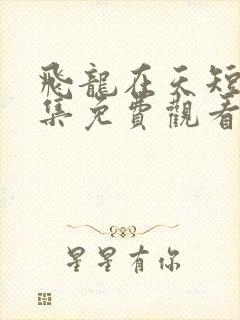 飛龍在天短
集免費觀看
星星有你